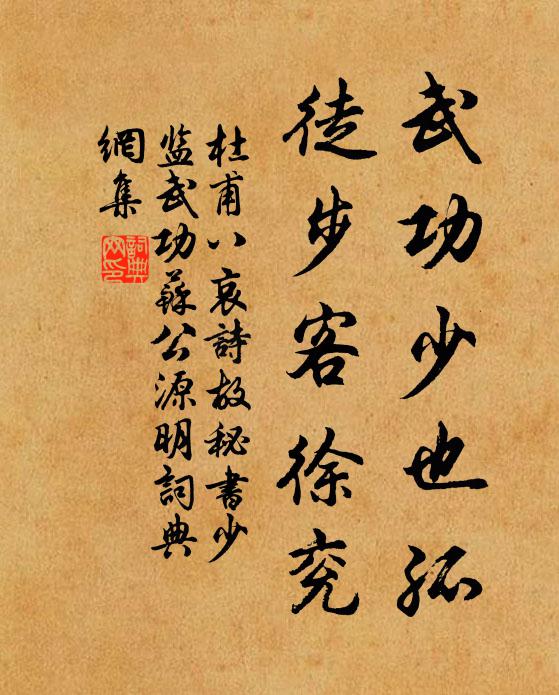 武功少也孤
徒步客徐兖
杜甫八哀詩故秘書少
监武功蘇公源明詞典
網集
詞典
网印